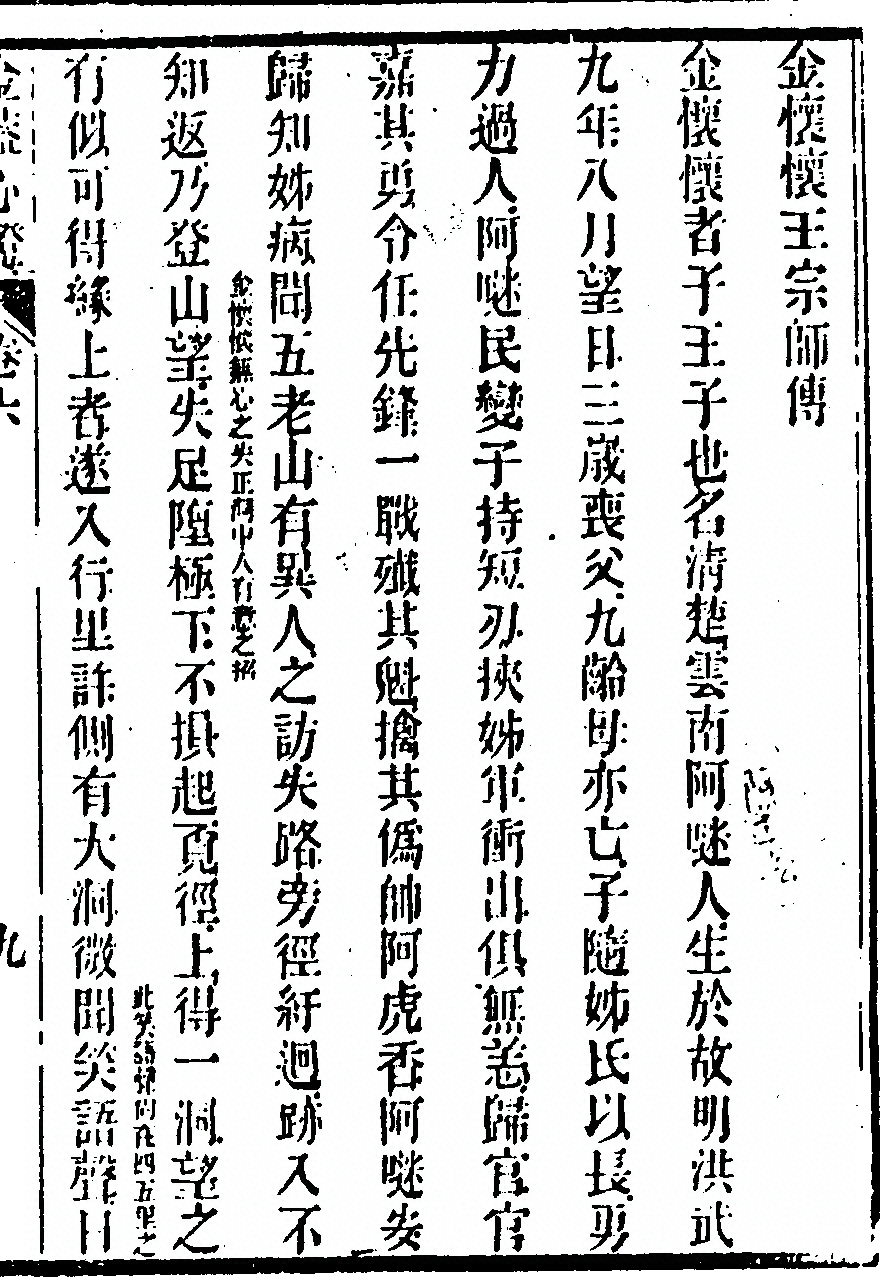 金懷懷王宗師傳
金懷懷者子王子也名清楚雲南阿㖼人生於故明洪武
九年八月望日三歲喪父九齡母亦亡子隨姊氏以長勇
力過人阿㖼民變子持短刃挾姊軍衝出俱無恙歸官官
嘉其勇令任先鋒一戰殲其魁擒其僞帥阿虎香阿㖼安
歸知姊病聞五老山有異人之訪失路旁徑紆迴跡入不
金懷懷無心之失正洞中人有意之招
知返乃登山望失足墮極下不損起覓徑上得一洞望之
此笑語聲尚在四五里之
有似可得緣上者遂入行里許側有大洞微聞笑語聲日
卷六
九